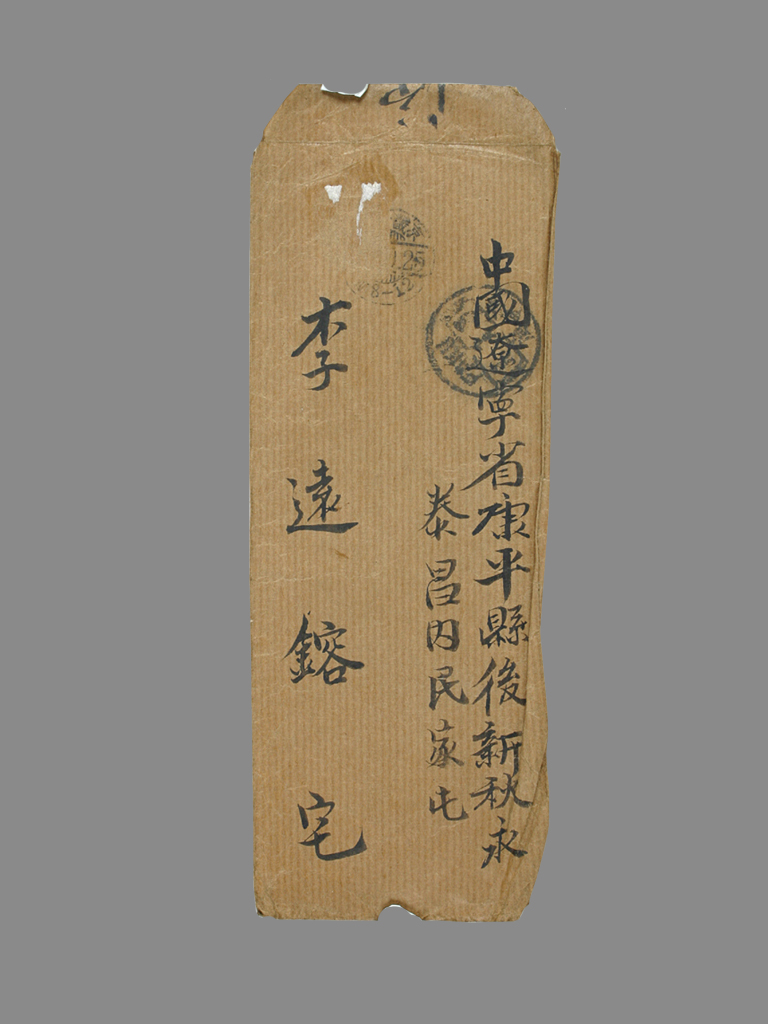 中國遼寧省康平縣後新秋永
泰昌內民家屯
李遠鎔宅
125